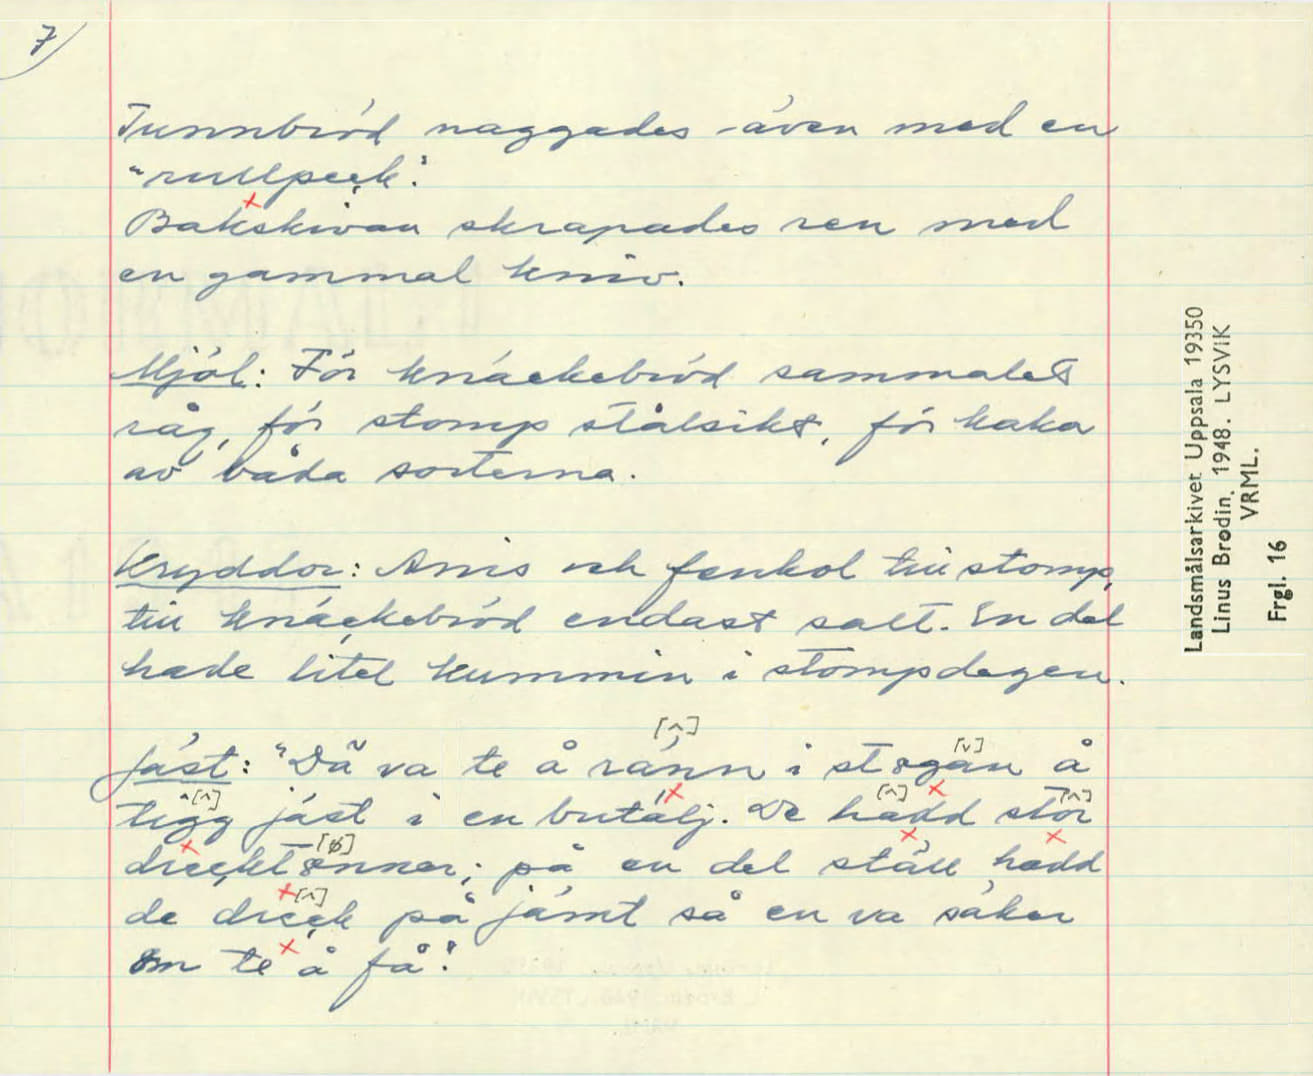 7
Tunnbröd naggades även med en
"rullpeck".
Bakskivan skrapades ren med
en gammal kniv.
Mjöl: För knäckebröd sammalet
råg, för stomp stålsikt, för kaka
av båda sorterna.
Kryddor: Anis och fenkol till stomp,
till knäckebröd endast salt. En del
hade litet kummin i stompdegen.
[^]
[v]
Jäst: "Dä va te å ränn i stogan å
[^] [^] [^]
tigg jäst i en butälj. De hadd stor
[ø]
drecktonner; på en del ställ hadd
[^]
de dreck på jämt så en va säker
om te å få".
Landsmålsarkivet Uppsala 19350
Linus Brodin. 1948. LYSVIK
VRML.
Frgl. 16